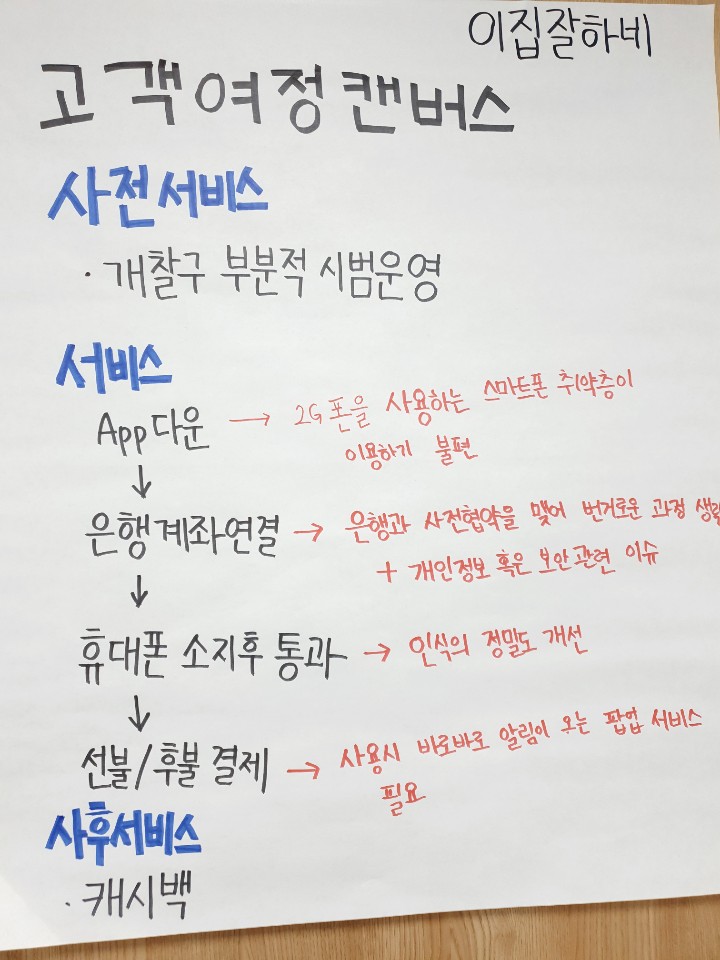 이집잘하네
고객여정캔버스
사전서비스
· 개찰구 부분적 시범운영
서비스
App다운 → 2G폰을 사용하는 스마트폰 취약층이
이용하기 불편
↓
은행계좌연결 → 은행과 사전협약을 맺어 번거로운 과정 생략
+ 개인정보 혹은 보안관련 이슈
↓
휴대폰 소지후 통과 → 인식의 정밀도 개선
↓
선불/후불 결제 → 사용시 바로바로 알림이 오는 팝업 서비스
필요
사후서비스
· 캐시백